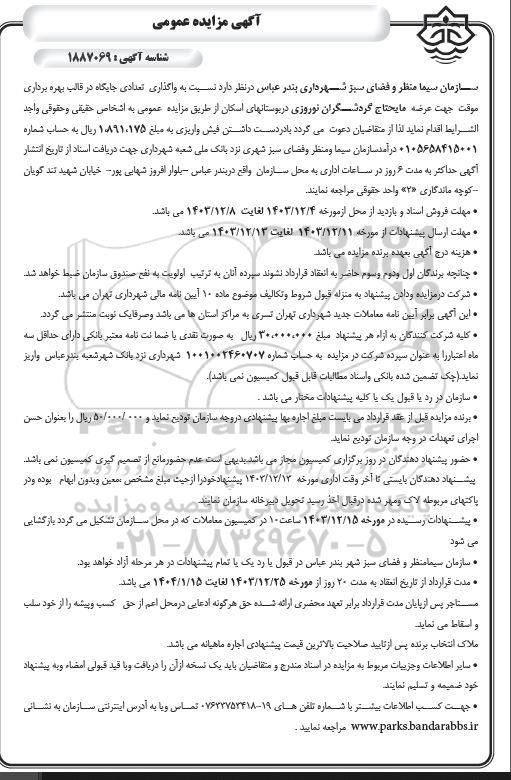 آگهی مزایده عمومی
شناسه آگهی : ۱۸۸۷۰۶۹
سـازمان سیما منظر و فضای سبز شـهرداری بندر عباس درنظر دارد نسـبت به واگذاری تعدادی جایگاه در قالب بهره برداری
موقت جهت عرضه مایحتاج گردشـگران نوروزی دربوستانهای اسکان از طریق مزایده عمومی به اشخاص حقیقی وحقوقی واجد
الشـرایط اقدام نماید لذا از متقاضیان دعوت می گردد بادردست داشـتن فیش واریزی به مبلغ ۱،۸۹۱،۱۷۵ ریال به حساب شماره
۰۱۰۵۶۵۸۴۱۵۰۰۱ درآمدسازمان سیما ومنظر وفضای سبز شهری نزد بانک ملی شعبه شهرداری جهت دریافت اسناد از تاریخ انتشار
آگهی حداکثر به مدت ۶ روز در ساعات اداری به محل سـازمان واقع دربندر عباس –بلوار افروز شهابی پور– خیابان شهید تند گویان
–کوچه ماندگاری «۲» واحد حقوقی مراجعه نمایند.
• مهلت فروش اسناد و بازدید از محل ازمورخه ۱۴۰۳/۱۲/۴ لغایت ۱۴۰۳/۱۲/۸ می باشد.
• مهلت ارسال پیشنهادات از مورخه ۱۴۰۳/۱۲/۱۱ لغایت ۱۴۰۳/۱۲/۱۳ می باشد.
• هزینه درج آگهی بعهده برنده مزایده می باشد.
• چنانچه برندگان اول ودوم وسوم حاضر به انعقاد قرارداد نشوند سپرده آنان به ترتیب اولویت به نفع صندوق سازمان ضبط خواهد شد.
• شرکت درمزایده ودادن پیشنهاد به منزله قبول شروط وتکالیف موضوع ماده ۱۰ آیین نامه مالی شهرداری تهران می باشد.
• این آگهی برابر آیین نامه معاملات جدید شهرداری تهران تسری به مراکز استان ها می باشد وصرفایک نوبت منتشر می گردد.
• کلیه شرکت کنندگان به ازاء هر پیشنهاد مبلغ ۳۰،۰۰۰،۰۰۰ ریال به صورت نقدی یا ضما نت نامه معتبر بانکی دارای حداقل سه
ماه اعتباررا به عنوان سپرده شرکت در مزایده به حساب شماره ۱۰۰۱۰۰۲۴۶۰۷۰۷ شهرداری نزد بانک شهرشعبه بندرعباس واریز
نماید.(چک تضمین شده بانکی واسناد مطالبات قابل قبول کمیسیون نمی باشد).
• سازمان در رد یا قبول یک یا کلیه پیشنهادات مختار می باشد .
• برنده مزایده قبل از عقد قرارداد می بایست مبلغ اجاره بها پیشنهادی دروجه سازمان تودیع نماید و ۵۰/۰۰۰/۰۰۰ ریال را بعنوان حسن
اجرای تعهدات در وجه سازمان تودیع نماید.
• حضور پیشنهاد دهندگان در روز برگزاری کمیسیون مجاز می باشد.بدیهی است عدم حضورمانع از تصمیم گیری کمیسیون نمی باشد.
پیشـنهاد دهندگان بایستی تا آخر وقت اداری مورخه ۱۴۰۳/۱۲/۱۳ پیشنهادخودرا ازحیث مبلغ مشخص ،معین وبدون ابهام بوده ودر
پاکتهای مربوطه لاک ومهر شده درقبال اخذ رسید تحویل دبیرخانه سازمان نمایند.
• پیشـنهادات رسـیده در مورخه ۱۴۰۳/۱۲/۱۵ ساعت۱۰ در کمیسیون معاملات که در محل سـازمان تشکیل می گردد بازگشایی
می شود
• سازمان سیمامنظر و فضای سبز شهر بندر عباس در قبول یا رد یک یا تمام پیشنهادات در هر مرحله آزاد خواهد بود.
• مدت قرارداد از تاریخ انعقاد به مدت ۲۰ روز از مورخه ۱۴۰۳/۱۲/۲۵ لغایت ۱۴۰۴/۱/۱۵ می باشد.
مسـتاجر پس ازپایان مدت قرارداد برابر تعهد محضری ارائه شـده حق هرگونه ادعایی درمحل اعم از حق کسب وپیشه را از خود سلب
و اسقاط می نماید.
ملاک انتخاب برنده پس ازتایید صلاحیت بالاترین قیمت پیشنهادی اجاره ماهیانه می باشد.
• سایر اطلاعات وجزییات مربوط به مزایده در اسناد مندرج و متقاضیان باید یک نسخه ازآن را دریافت وبا قید قبولی امضاء وبه پیشنهاد
خود ضمیمه و تسلیم نمایند.
• جهـت کسـب اطلاعات بیشـتر با شـماره تلفن هـای ۱۹-۰۷۶۳۳۷۵۳۴۱۸ تمـاس ویا به آدرس اینترنتی سـازمان به نشـانی
www.parks.bandarabbs.ir مراجعه نمایید .
۰۲۱-۸۸۳۴۹۶۷۰-۵